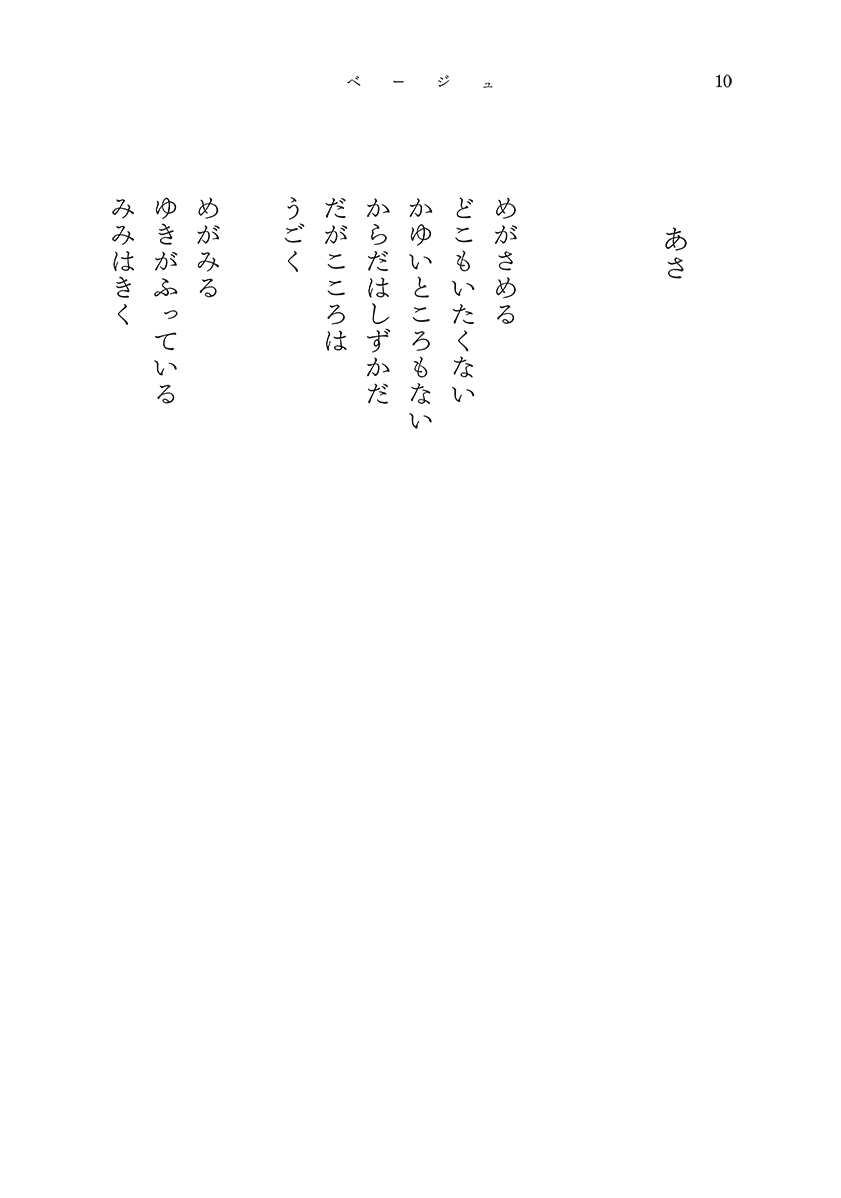 ベージュ
10
あさ
めがさめる
どこもいたくない
かゆいところもない
からだはしずかだ
だがこころは
うごく
めがみる
ゆきがふっている
みみはきく